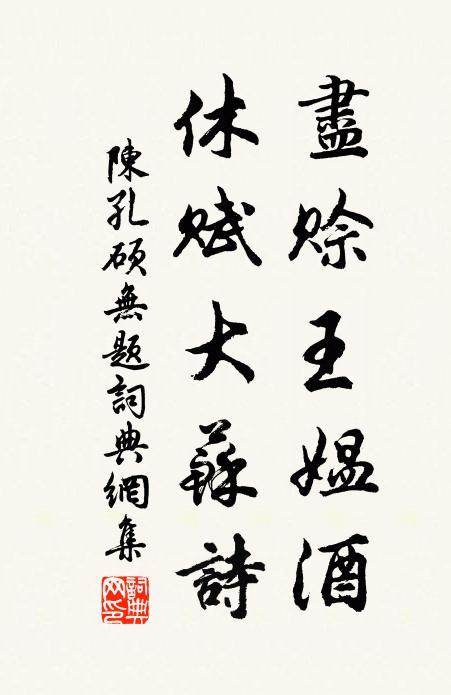 盡賒王媪酒
休賦大蘇詩
陳孔碩無題詞典網集
詞典網印